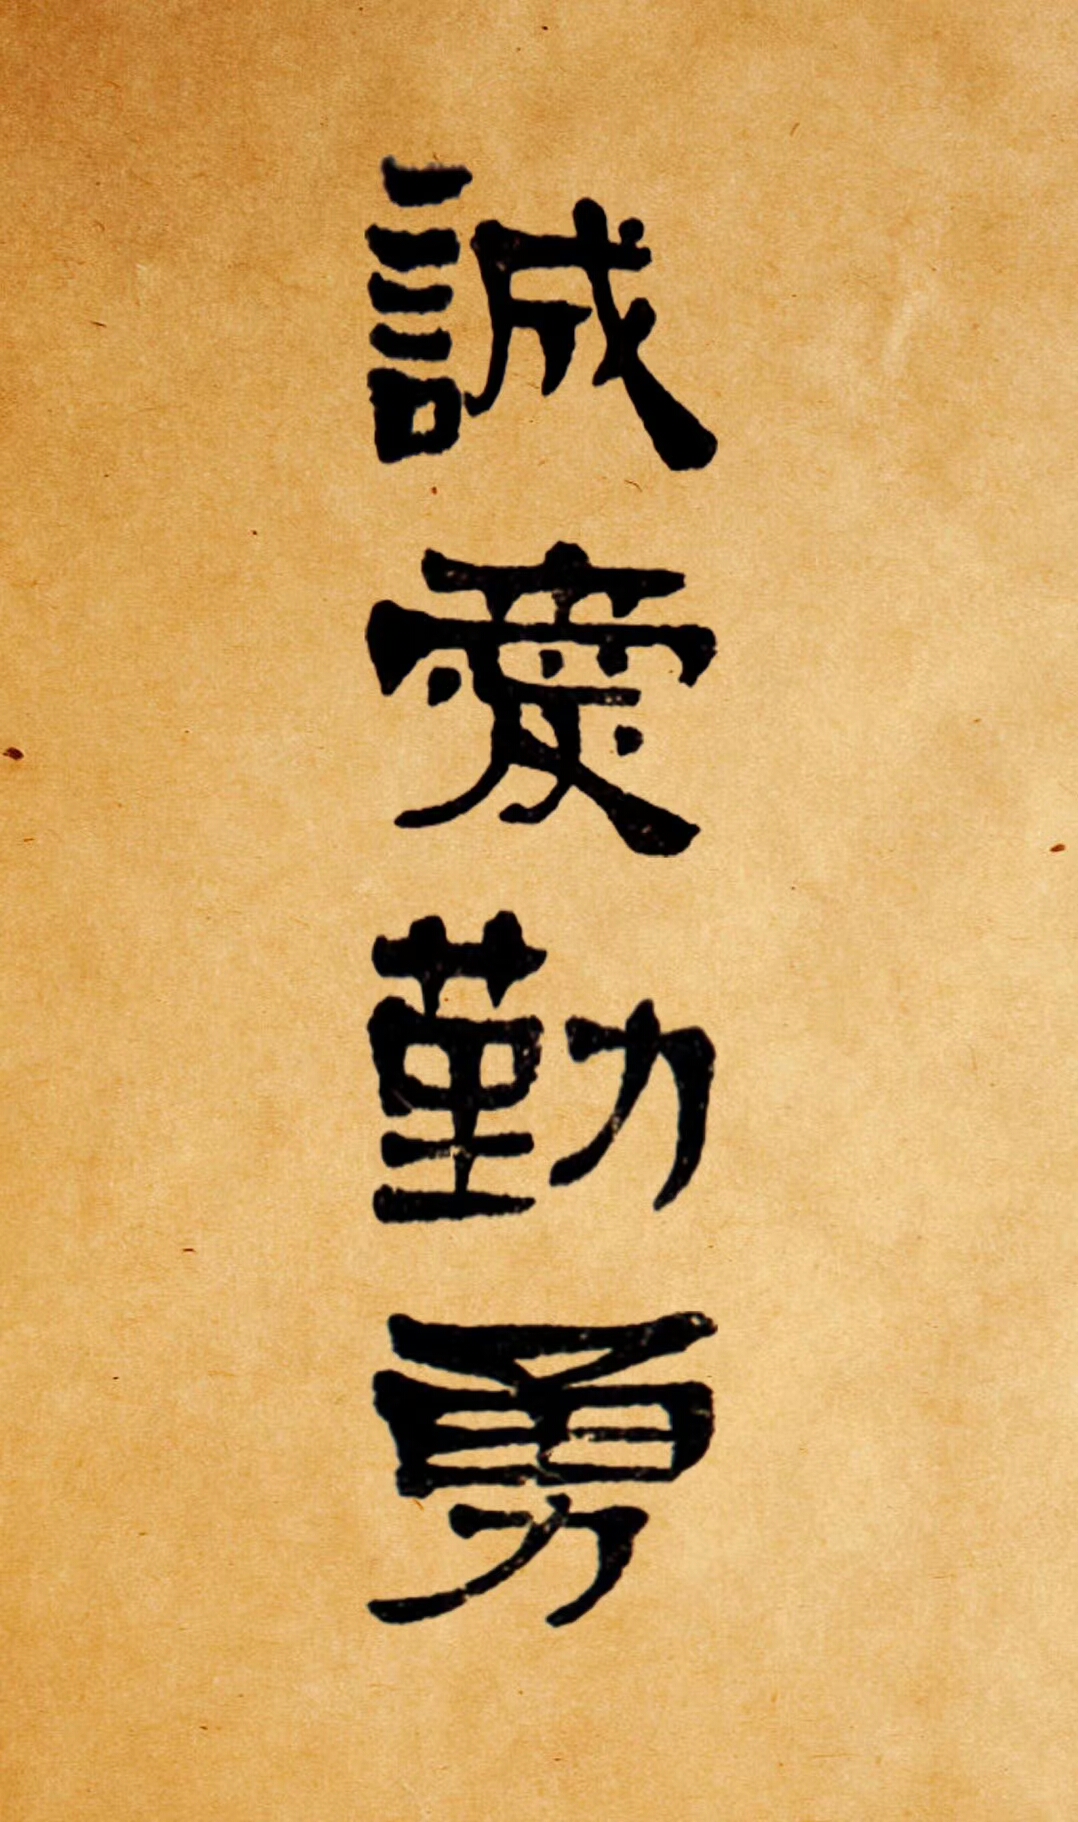 誠愛勤勇